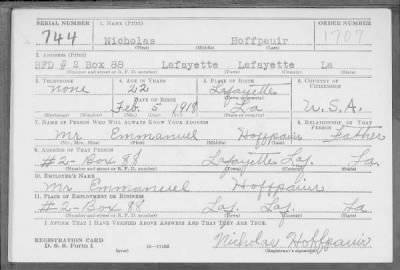 SERIAL NUMBER 1. NAME (Print) ORDER NUMBER
744 Nicholas Hoffpauir 1707
(First) (Middle) (Last)
2. ADDRESS (Print)
RFD # 2 Box 88 Lafayette Lafayette La
(Number and street or R. F. D. number) (Town) (County) (State)
3. TELEPHONE 4. AGE IN YEARS 5. PLACE OF BIRTH 6. COUNTRY OF CITIZENSHIP
none 22 Lafayette
DATE OF BIRTH (Town or county)
Feb. 5 1918 La U.S.A.
(Mo.) (Day) (Yr.) (State or country)
7. NAME OF PERSON WHO WILL ALWAYS KNOW YOUR ADDRESS 8. RELATIONSHIP OF THAT PERSON
Mr Emmanuel Hoffpauir Father
(Mr., Mrs., Miss) (First) (Middle) (Last)
9. ADDRESS OF THAT PERSON
#2-Box 88 Lafayette Laf. La.
(Number and street or R. F. D. number) (Town) (County) (State)
10. EMPLOYER'S NAME
Mr Emmanuel Hoffpauir
11. PLACE OF EMPLOYMENT OR BUSINESS
#2-Box 88 Laf. Laf. La
(Number and street or R. F. D. number) (Town) (County) (State)
I AFFIRM THAT I HAVE VERIFIED ABOVE ANSWERS AND THAT THEY ARE TRUE.
REGISTRATION CARD Nicholas Hoffpauir
D. S. S. Form 1 (over) (Registrant's signature)